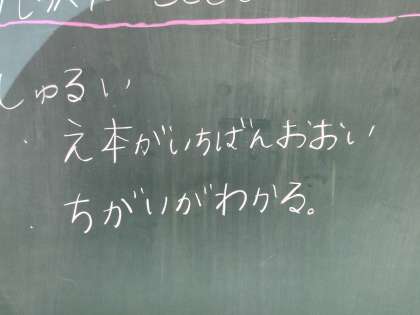 しゅるい
・え本がいちばんおおい
・ちがいがわかる。